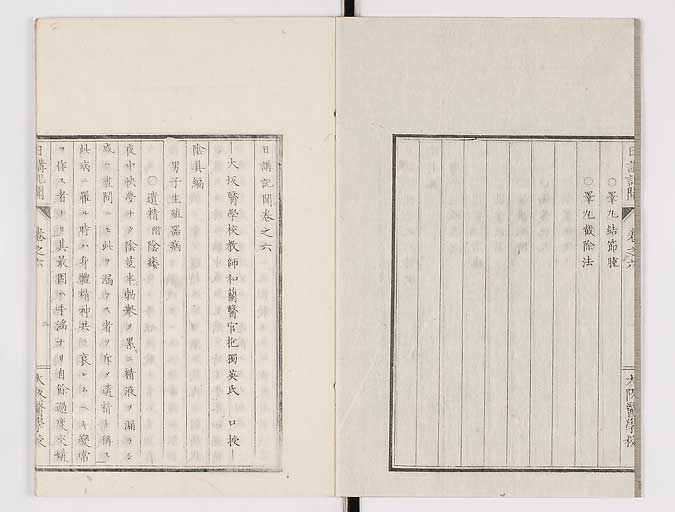 日講記聞
卷之六
大阪醫學校
○睪丸結節腫
○睪丸截除法
日講記聞卷之六
大坂醫學校教師和蘭醫官抱獨英氏 口授
陰具編
男子生殖器病
○遺精 附陰痿
夜中快夢ナク陰莖半勃擧ヲ累ニ精液ヲ漏ラシ
或ハ晝間ニモ此ヲ漏ラス者ヲ斥メ遺精ト稱ス
此病ニ罹ル時ハ身體精神共ニ衰ヒ
變常
ヲ
者
其最
因ハ手淫ナリ自餘過度交媾
日講記聞
卷之六
二
大阪醫學校